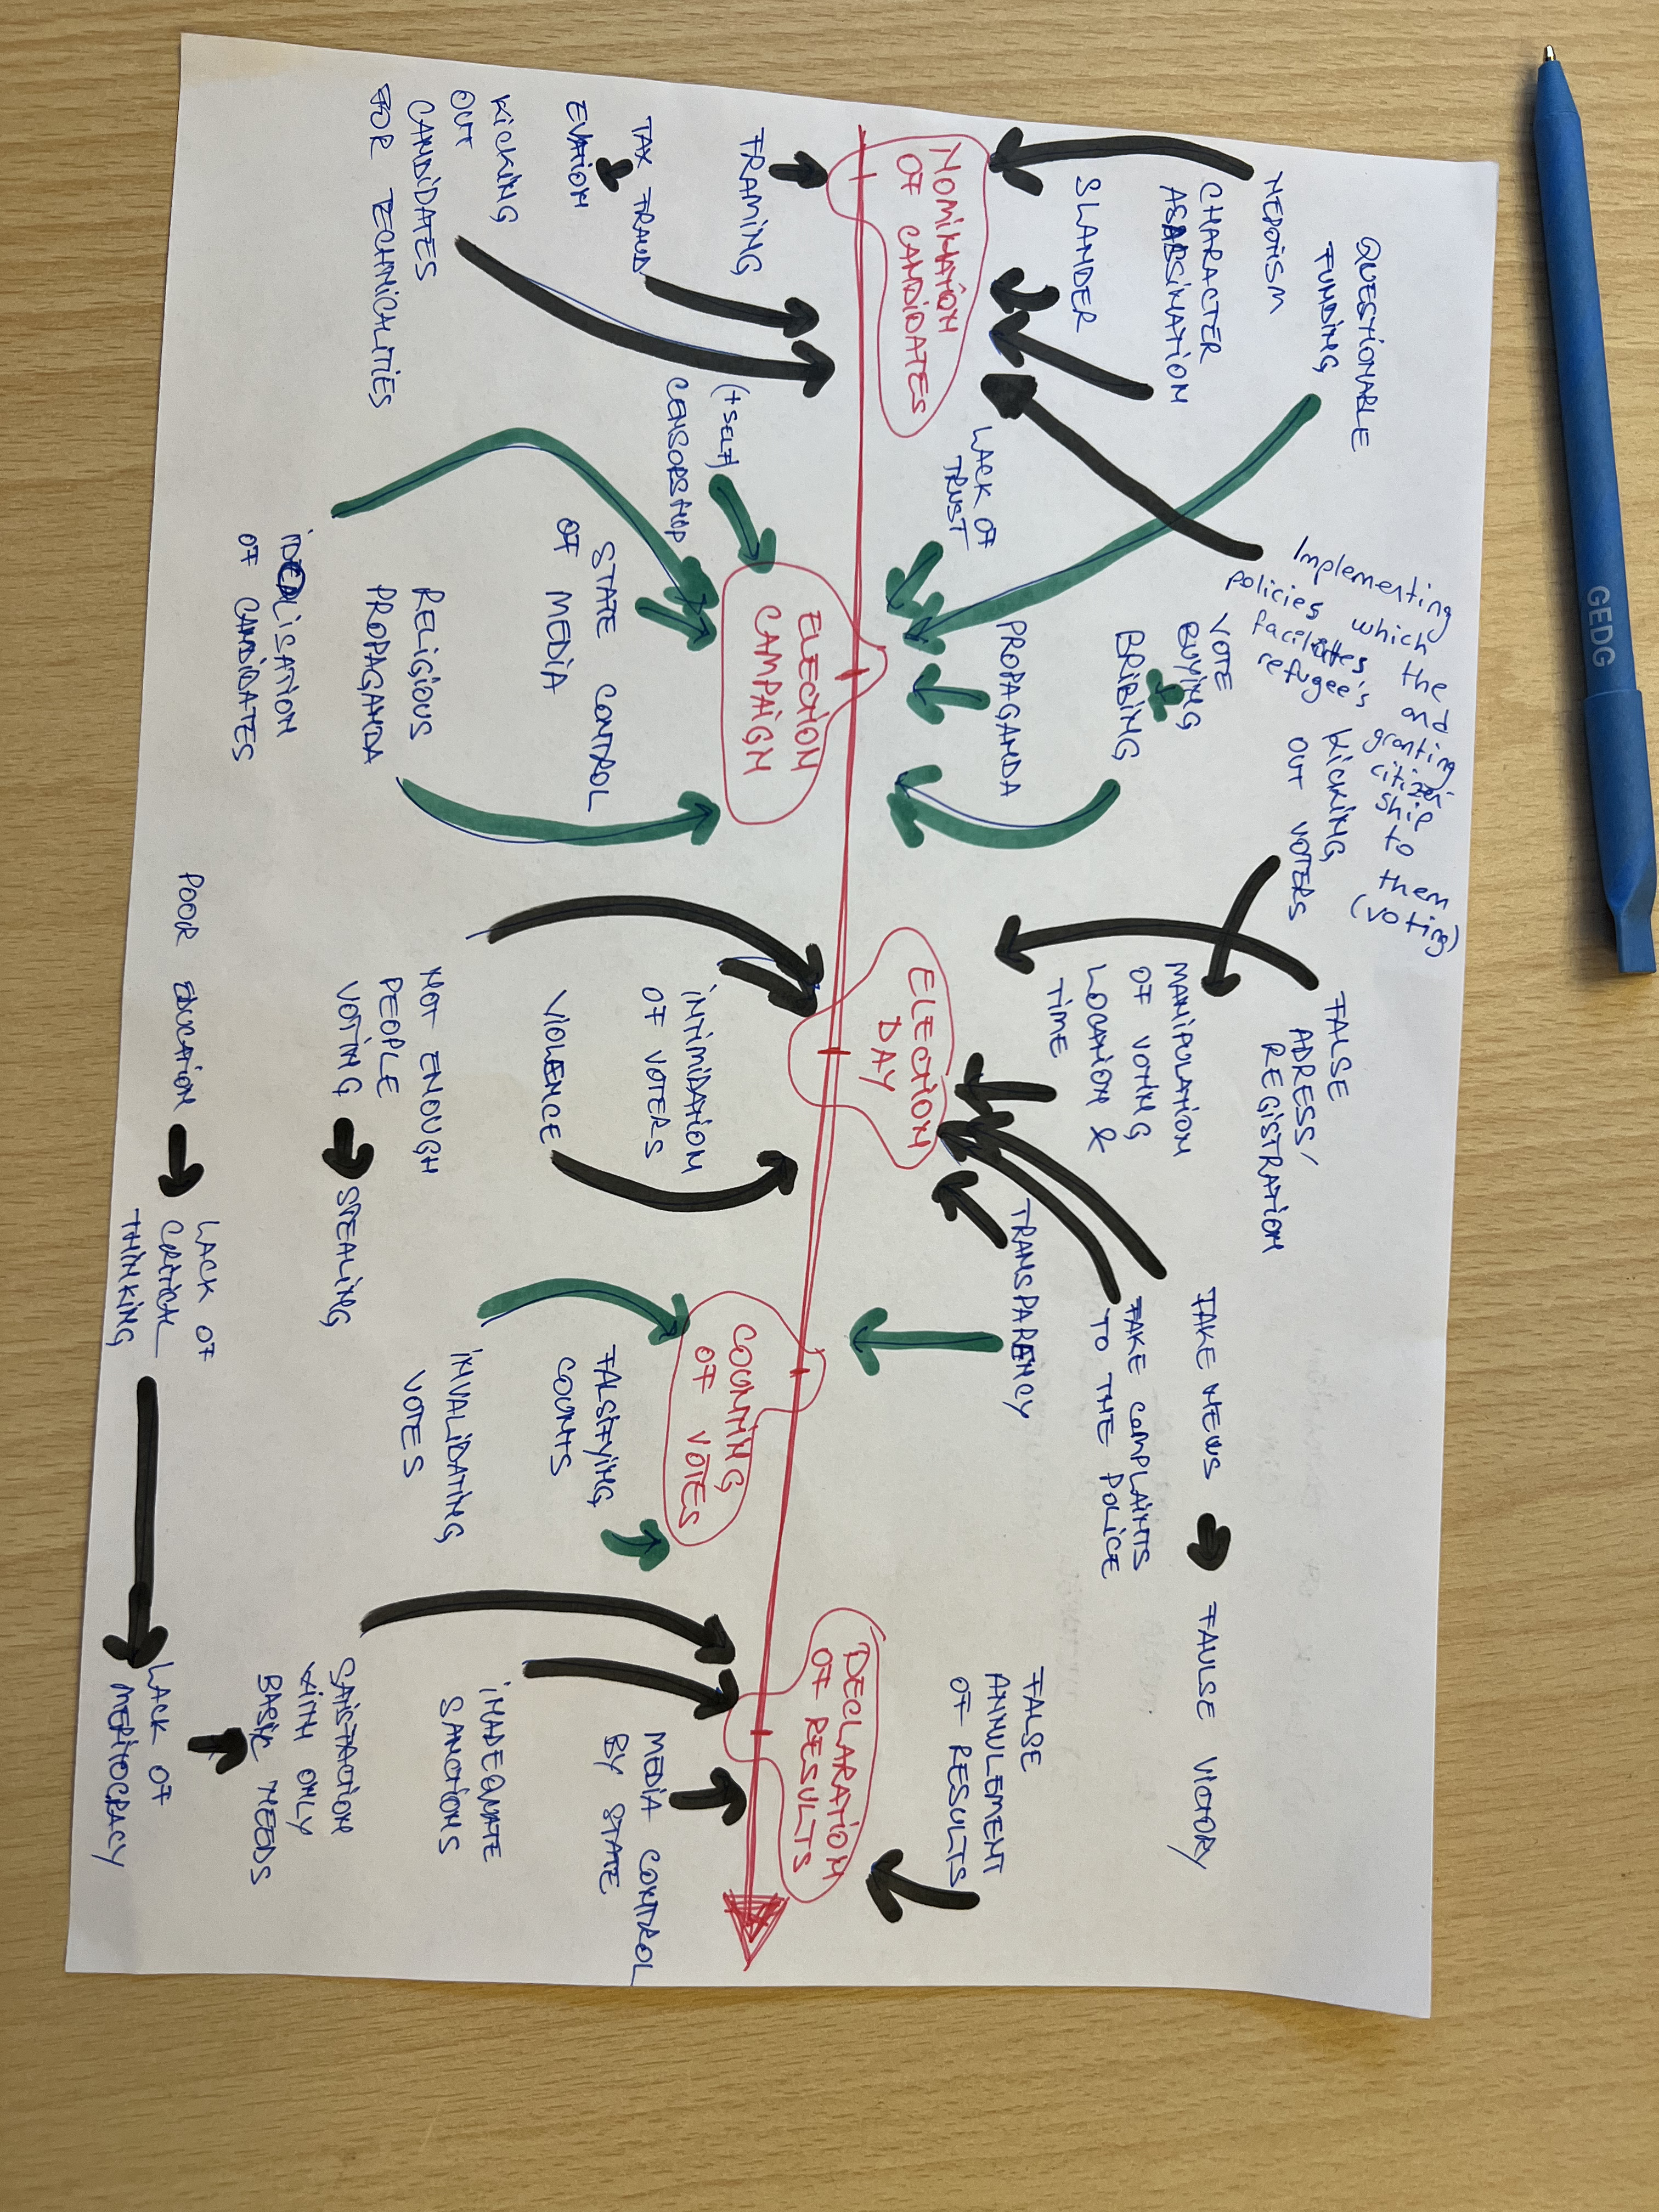 QUESTIONABLE
FUNDING
NEPOTISM
CHARACTER
ASSASSINATION
SLANDER
NOMINATION
OF CANDIDATES
FRAMING
TAX FRAUD
EVATION
KICKING
OUT
CANDIDATES
FOR TECHNICALITIES
Implementing
policies which the
facilitates and
refugee's granting
citizen
ship
to
them
(voting)
VOTE
BUYING
BRIBING
LACK OF
TRUST
PROPAGANDA
ELECTION
CAMPAIGN
(+SELF)
CENSORSHIP
STATE CONTROL
OF MEDIA
RELIGIOUS
PROPAGANDA
IDEALISATION
OF CANDIDATES
KICKING
OUT VOTERS
FALSE
ADRESS/
REGISTRATION
MANIPULATION
OF VOTING
LOCATION &
TIME
ELECTION
DAY
INTIMIDATION
OF VOTERS
VIOLENCE
NOT ENOUGH
PEOPLE
VOTING
STEALING
POOR EDUCATION
LACK OF
CRITICAL
THINKING
FAKE NEWS
FAULSE VICTORY
FAKE COMPLAINTS
TO THE POLICE
TRANSPARENCY
COUNTING
OF VOTES
FALSIFYING
COUNTS
INVALIDATING
VOTES
FALSE
ANNULEMENT
OF RESULTS
DECLARATION
OF RESULTS
MEDIA CONTROL
BY STATE
INADEQUATE
SANCTIONS
SATISFACTION
WITH ONLY
BASIC NEEDS
LACK OF
MERITOCRACY
GEDG